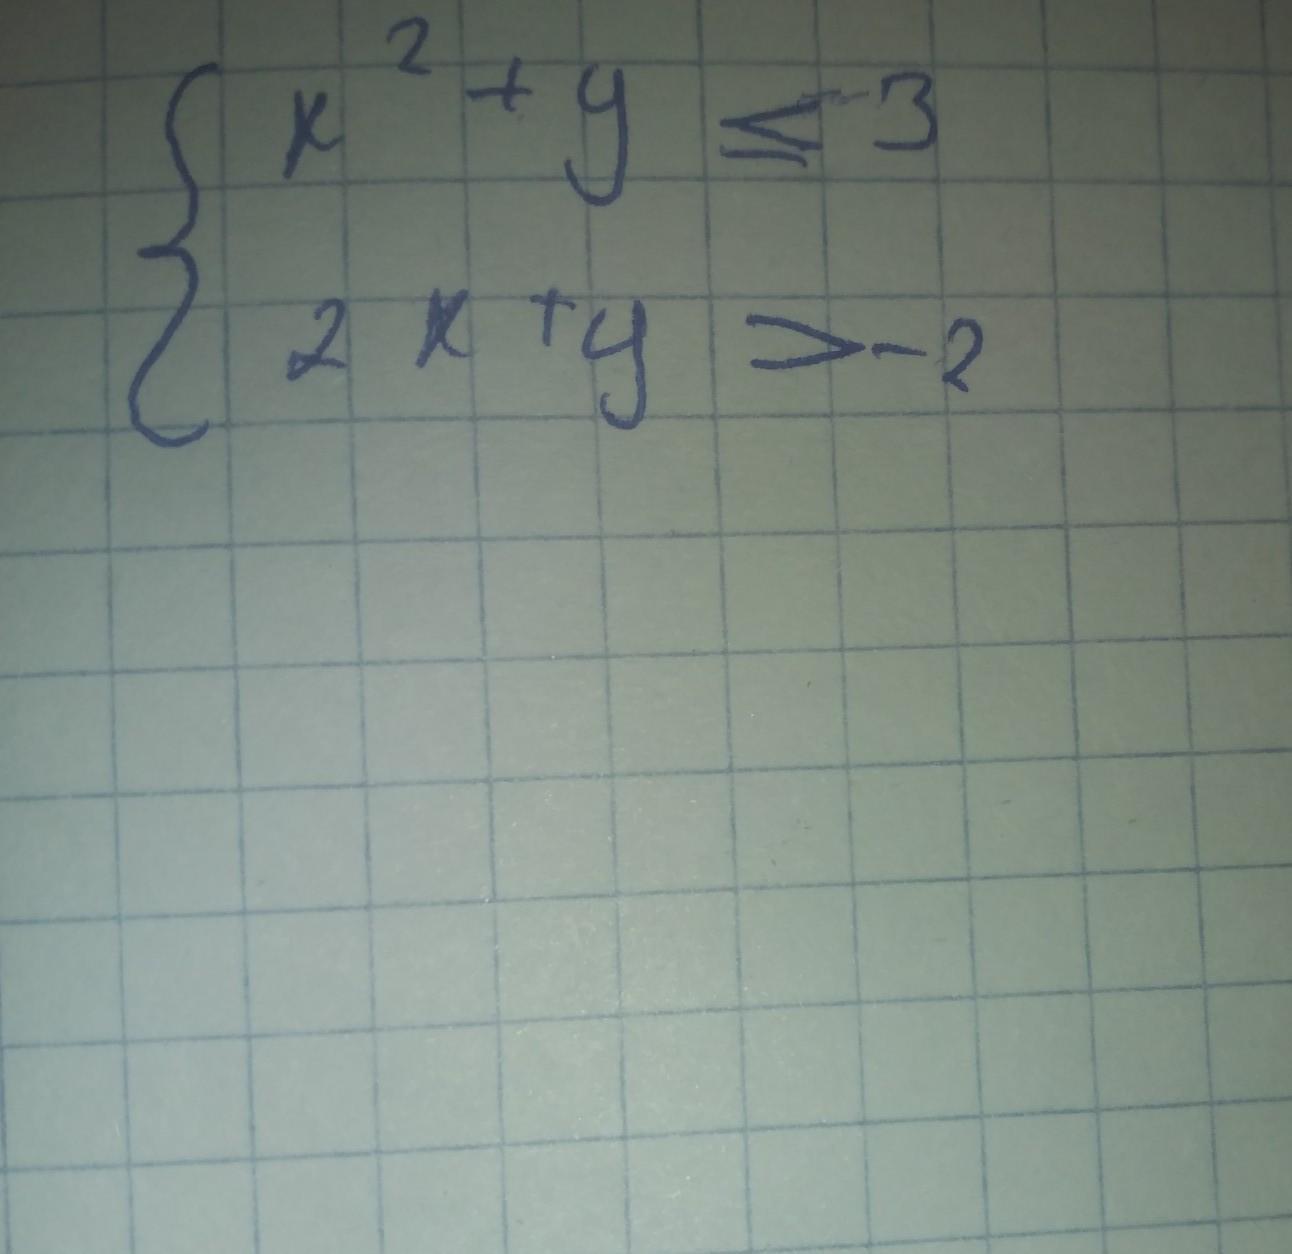 x² + y ≤ 3
2x + y > -2